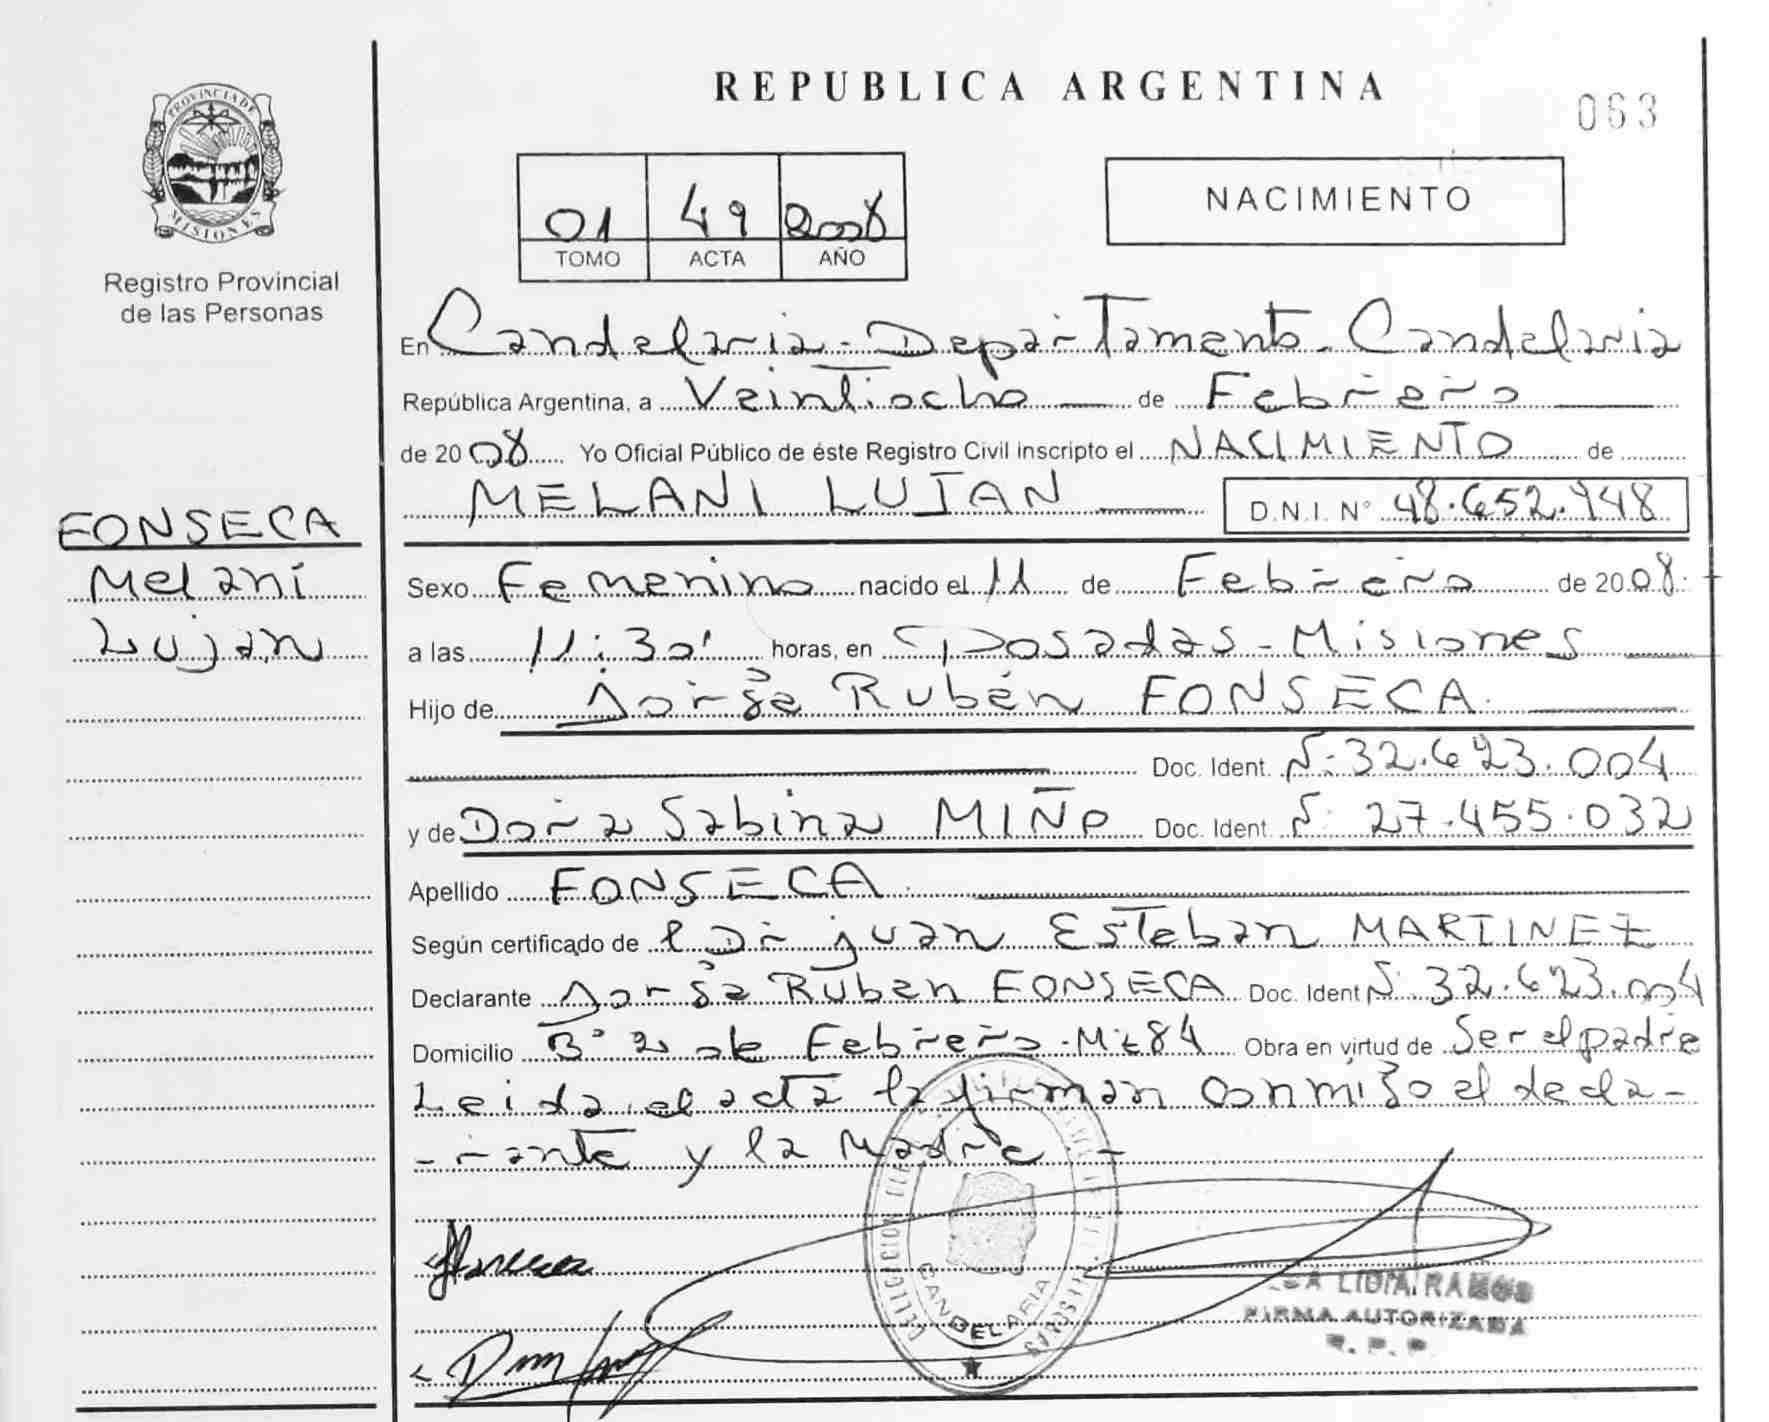 REPUBLICA ARGENTINA
063
PROVINCIA DE
MISIONES
Registro Provincial
de las Personas
NACIMIENTO
01 49 2008
TOMO ACTA AÑO
En Candelaria - Departamento - Candelaria
República Argentina, a Veintiocho de Febrero
de 2008 Yo Oficial Público de éste Registro Civil inscripto el NACIMIENTO de
MELANI LUJAN D.N.I. N° 48.652.948
FONSECA
Melani
Lujan
Sexo Femenino nacido el 11 de Febrero de 2008
a las 11:30' horas, en Posadas - Misiones
Hijo de Jorge Rubén FONSECA
Doc. Ident. N: 32.623.004
y de Dora Sabina MIÑO Doc. Ident N: 27.455.032
Apellido FONSECA
Según certificado de l Dr Juan Esteban MARTINEZ
Declarante Jorge Ruben FONSECA Doc. Ident N: 32.623.004
Domicilio B° 2 de Febrero - Mz 84 Obra en virtud de Ser el padre
Leida el acta la firman conmigo el decla-
-rante y la Madre -
CANDELARIA
LIDIA RAMOS
FIRMA AUTORIZADA
R. P. P.